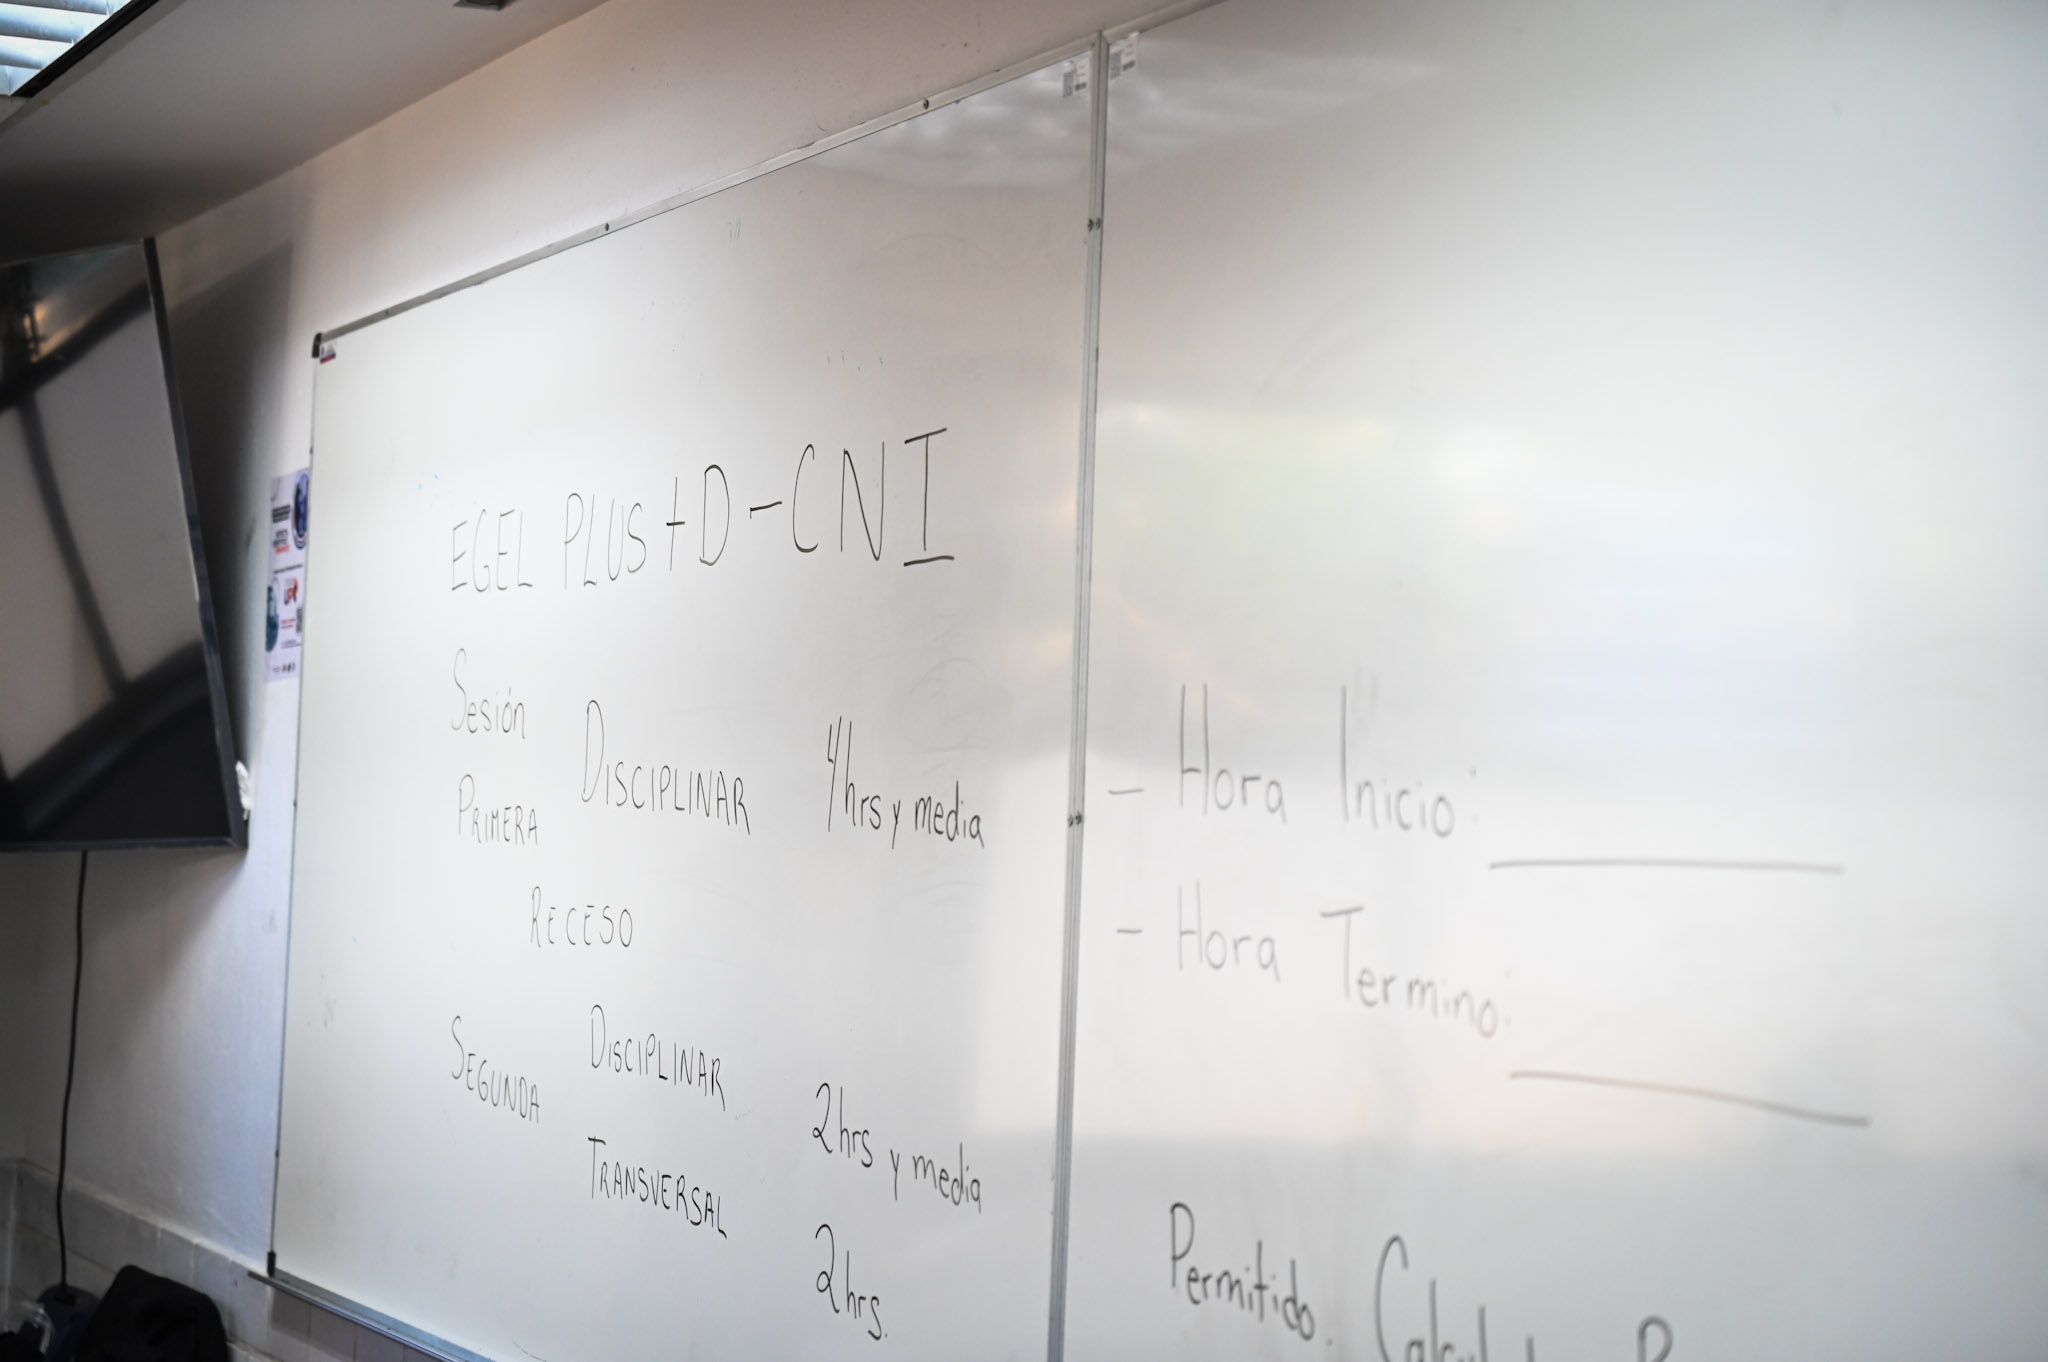 EGEL PLUS +D-CNI
Sesión
PRIMERA DISCIPLINAR 4hrs y media
RECESO
SEGUNDA DISCIPLINAR 2hrs y media
TRANSVERSAL 2hrs.
- Hora Inicio:
- Hora Termino:
Permitido.